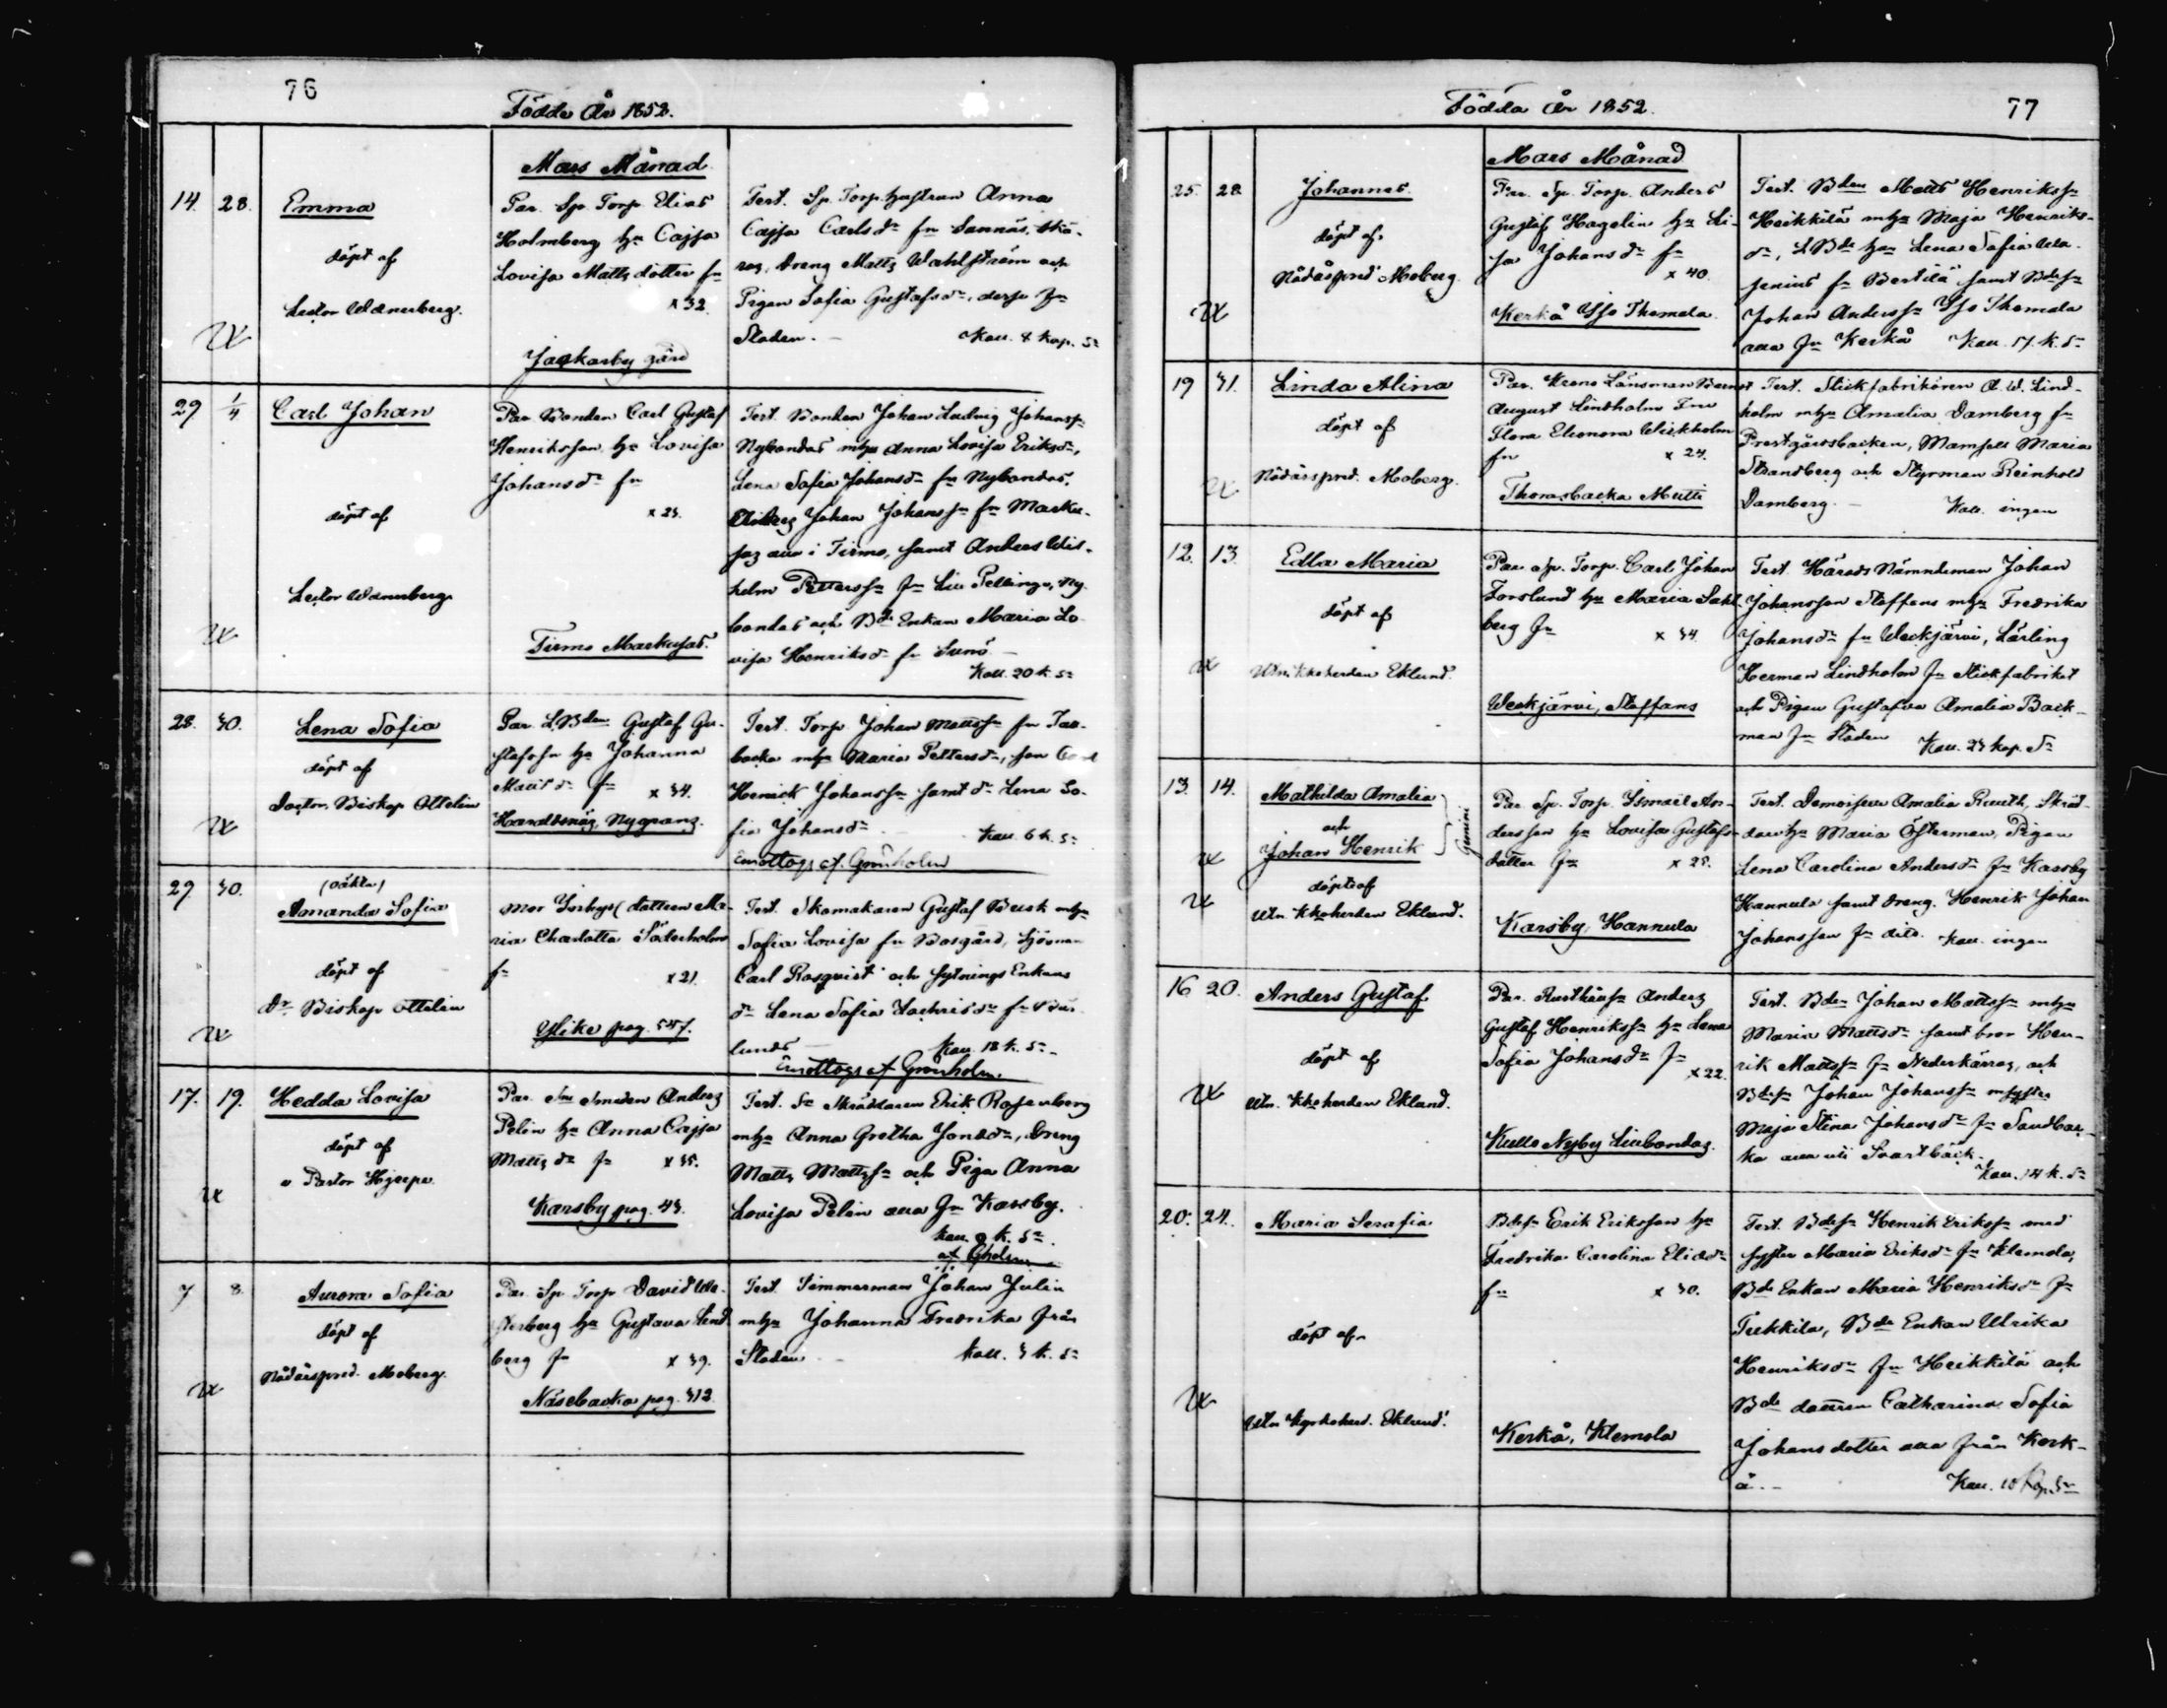 76
Födde År 1852.
Mars Månad
14. 28. Emma
döpt af
Lector Wanerberg.
Par. Sp. Torp. Elias
Holmberg hu Cajsa
Lovisa Matts dotter fr
x 32.
Jackarby gård
Test. Sp. Torp. hustrun Anna
Cajsa Carlsdr fr Sannäs,
Dreng Matts Wahlström och
Pigan Sofia Gustafsdr,
Staden. – Kall. 8 kop. Sr
29 1/4 Carl Johan
döpt af
Lector Wanerberg
Par. Bonden Carl Gustaf
Henriksson hu Lovisa
Johansdr fr
Tirmo Markusas.
Test. Bonden Johan Ludvig Johanss
Nybondas mhu Anna Lovisa Eriksdr,
Lena Sofia Johansdr fr Nybondas,
Johan Johanss fr Marku-
sas i Tirmo, samt Anders Wil-
helm Petterss fr Lill Pellinge, Ny-
bondas och Bde Enkan Maria Lo-
visa Henriksdr fr Sunö –
Kall. 20 k. Sr
28. 30. Lena Sofia
döpt af
Doctor. Biskop Ottelin
Par. LBden Gustaf Gu-
stafssn hu Johanna
Mattsdr fr x 34.
Haraldsnäs, Nygrans.
Test. Torp Johan Mattss fr Tall-
backa mhu Maria Pettersdr, son Carl
Henrick Johanss samt dr Lena So-
fia Johansdr – Kall. 6 k. Sr
Emottogs af Grönholm
29 30. (oäkta)
Amanda Sofia
döpt af
Dr Biskop Ottelin
Mor Inhys dottren Ma-
ria Charlotta Söderholm
fr x 21.
Ylike pag. 547.
Test. Skomakaren Gustaf Busk mhu
Sofia Lovisa fr Bosgård, Sjöman
Carl Rosqvist och sytnings Enkans
dr Lena Sofia Zachrisdr fr
lunds – Kall. 18 k. Sr –
Emottogs af Grönholm.
17. 19. Hedda Lovisa
döpt af
v Pastor Hjerpe
Par. Smeden Anders
Pelin hu Anna Cajsa
Mattsdr fr x 35.
Karsby pag. 43.
Test. Sn Skräddaren Erik Rosenberg
mhu Anna Gretha Jonasdr, Dreng
Matts Mattss och Piga Anna
Lovisa Pelin alla fr Karsby.
Kall. 9 k. Sr.
af Gholm
7 8. Aurora Sofia
döpt af
Nådårspred. Moberg.
Par. Sp Torp David We-
sterberg hu Gustava Lind-
berg fr x 39.
Näsebacka pag. 312.
Test. Timmerman Johan Julin
mhu Johanna Fredrika från
Staden. – Kall. 3 k. Sr
Födda År 1852. 77
Mars Månad
25. 28. Johannes
döpt af
Nådårspred Moberg.
Par. Sp. Torp. Anders
Gustaf Hagelin hu Li-
sa Johansdr fr
x 40.
Kerkå Yso Thomola.
Test. Bden Matts Henrikss
Heikkilä mhu Maja Henriks-
dr, LBde hu Lena Sofia Wa-
senius fr Bertilä samt Bdess
Johan Anderss Yso Thomola
alla fr Kerkå Kall. 17. k. Sr
19 31. Linda Alina
döpt af
Nådårspred. Moberg.
Par. Krono Länsman Bernet
August Lindholm Fru
Flora Eleonora Wickholm
fr x 24.
Thorasbacka Mutti
Test. Stickfabrikören A. W. Lind-
holm mhu Amalia Damberg fr
Prestgårdsbacken, Mamsell Maria
Strandberg och Styrman Reinhold
Damberg. – Kall. ingen
12. 13. Edla Maria
döpt af
Utn. Kkoherden Eklund.
Par. Sp. Torp. Carl Johan
Forslund hu Maria Sahl-
berg fr x 34.
Weckjärvi, Staffans
Test. Härads Nämndeman Johan
Johansson Staffans mhu Fredrika
Johansdr fr Weckjärvi, Lärling
Herman Lindholm fr Stickfabriket
och Pigan Gustafva Amalia Back-
man fr Staden Kall. 23 kop. Sr
13. 14. Mathilda Amalia
och
Johan Henrik
Gemini
döpte af
Utn. Kkoherden Eklund.
Par. Sp. Torp. Ismael An-
dersson hu Lovisa Gustafs-
dotter fr x 28.
Karsby, Hannula
Test. Demoiselle Amalia Ruuth, Skräd-
dare hu Maria Österman, Pigan
Lena Carolina Andersdr fr Karsby
Hannula samt dreng. Henrik Johan
Johansson fr dito. Kall. ingen
16 20. Anders Gustaf
döpt af
Utn. Kkoherden Eklund.
Par. Rusthålls Anders
Gustaf Henrikss hu Lena
Sofia Johansdr fr
x 22.
Kullo Nyby Lillbondas.
Test. Bden Johan Mattss mhu
Maria Mattsdr samt bror Hen-
rik Mattss fr Nederkärras, och
Bdess Johan Johanss m syster
Maja Stina Johansdr fr Sandbac-
ka alla uti Svartbäck.
Kall. 14 k. Sr
20. 24. Maria Serafia
döpt af
Utn Kyrkoherd. Eklund.
Bdess Erik Eriksson hu
Fredrika Carolina Eliædr
fr x 30.
Kerkå, Klemola
Test. Bdess Henrik Erikss med
syster Maria Eriksdr fr Klemola,
Bde Enkan Maria Henriksdr fr
Tickkila, Bde Enkan Ulrika
Henriksdr fr Heikkilä och
Bde dottren Catharina Sofia
Johans dotter alla från Kerk-
å. – Kall. 10 Kop. Sr